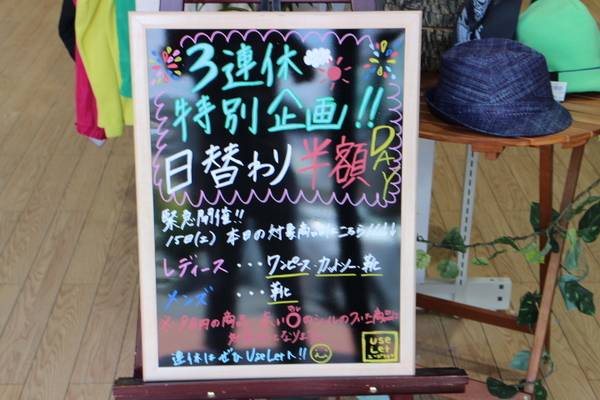 3連休
特別企画!!
日替わり半額DAY
緊急開催!!
15日(土) 本日の対象商品はこちら!!!!
レディース ・・・ワンピース・カットソー・靴
メンズ ・・・靴
の商品、赤い〇のシールの
Use
Let
連休はぜひUseLetへ!!